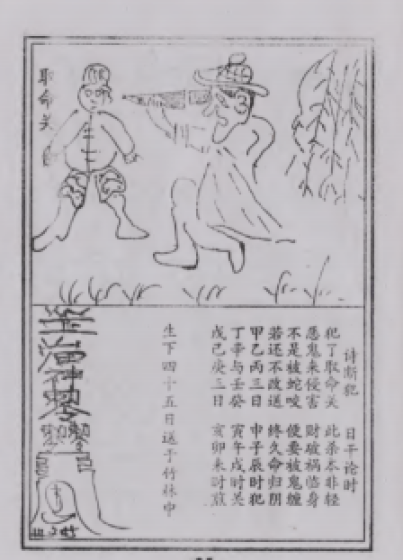 取命关
诗断犯 日干论时
犯了取命关 此杀本非轻
恶鬼来侵害 财破祸临身
不是被蛇咬 便要被鬼缠
若还不改送 终久命归阴
甲乙丙三日 申子辰时犯
丁辛与壬癸 寅午戌时关
戊己庚三日 亥卯未时煎
生下四十五日送于竹林中